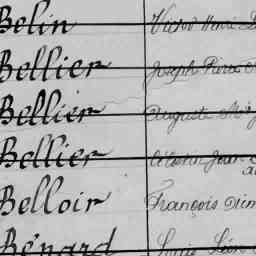 Belin Victor Henri
Bellier Joseph Pierre
Bellier Auguste
Bellier Célestin Jean
Belloir François
Bénard Louis Léon